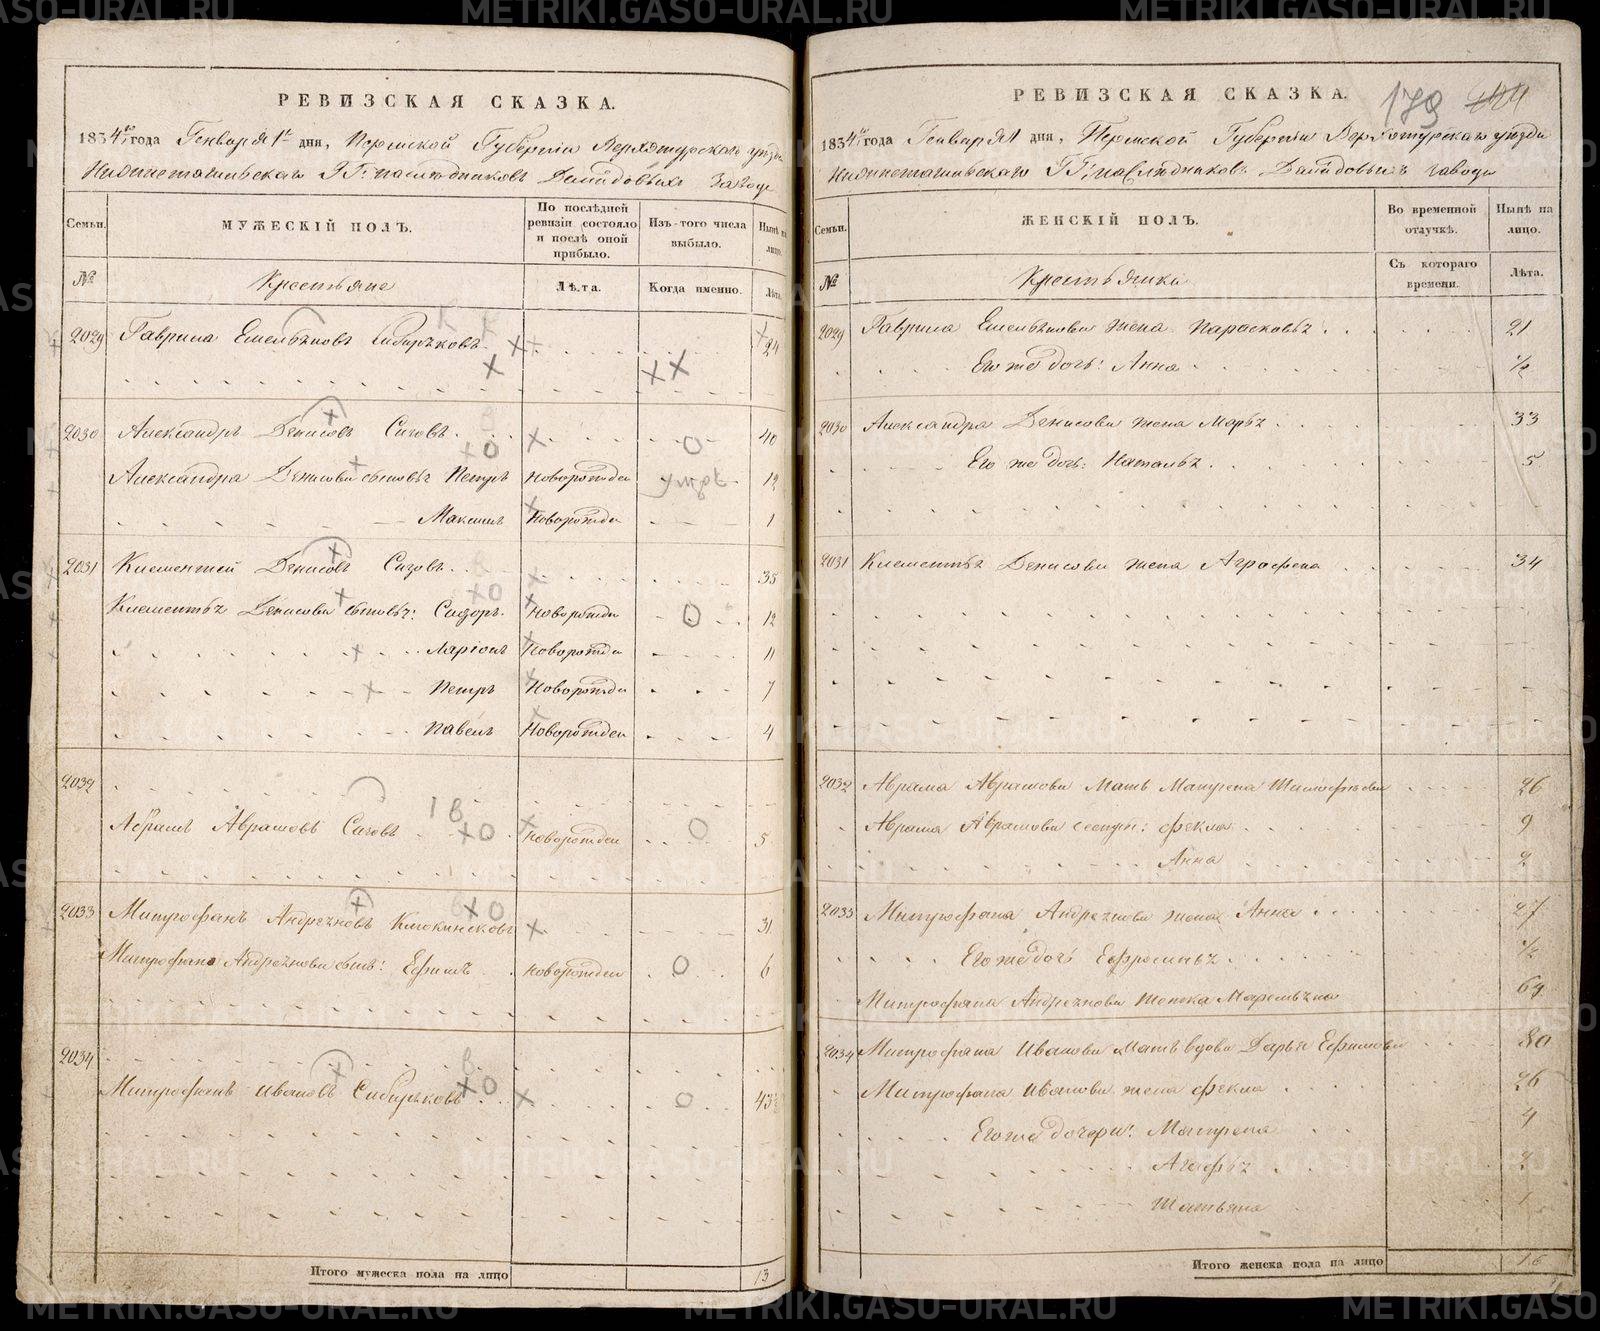 РЕВИЗСКАЯ СКАЗКА.
1834го года Генваря 1 дня, Пермской Губернии Верхотурскаго уезда
Нижнетагильскаго ГГ: наследниковъ Демидовыхъ Завода
Семьи.
МУЖЕСКІЙ ПОЛЪ.
По последней ревизіи состояло и после оной прибыло.
Изъ-того числа выбыло.
Ныне на лицо.
№
Крестьяне
Лѣта.
Когда именно.
Лѣта.
2029 Гаврила Емельяновъ Сибиряковъ 24
2030 Александръ Денисовъ Сизовъ 40
Александра Денисова сыновья Петръ новорожден 12
Максимъ Новорожден 1
2031 Климентий Денисовъ Сизовъ 35
Климентья Денисова сыновья: Сидоръ новорожден 12
Ларіонъ Новорожден 11
Петръ Новорожден 7
Павелъ Новорожден 4
2032
Абрамъ Абрамовъ Сизовъ новорожден 5
2033 Митрофанъ Андреяновъ 31
Митрофана Андреянова сынъ: Ефимъ новорожден 6
2034
Митрофанъ Ивановъ Сибиряковъ 43
Итого мужеска пола на лицо 13
РЕВИЗСКАЯ СКАЗКА.
179
1834го года Генваря 1 дня, Пермской Губернии Верхотурскаго уезда
Нижнетагильскаго ГГ: наследниковъ Демидовыхъ завода
Семьи.
ЖЕНСКІЙ ПОЛЪ.
Во временной отлучкѣ.
Нынѣ на лицо.
№
Крестьянки
Съ котораго времени.
Лѣта.
2029 Гаврила Емельянова жена Парасковья 21
Его же дочь: Анна 1/2
2030 Александра Денисова жена Марья 33
Его же дочь: Наталья 5
2031 Климентья Денисова жена Аграфена 34
2032 Абрама Абрамова мать Матрена Тимофеева 26
Абрама Абрамова сестры: Фекла 9
Анна 2
2033 Митрофана Андреянова жена Анна 27
Его же дочь Ефросинья 1/2
Митрофана Андреянова тетка Маремьяна 69
2034 Митрофана Иванова мать вдова Дарья Ефимова 80
Митрофана Иванова жена Фекла 26
Его же дочери: Матрена 4
Агафья 2
Татьяна 1
Итого женска пола на лицо 16
METRIKI.GASO-URAL.RU